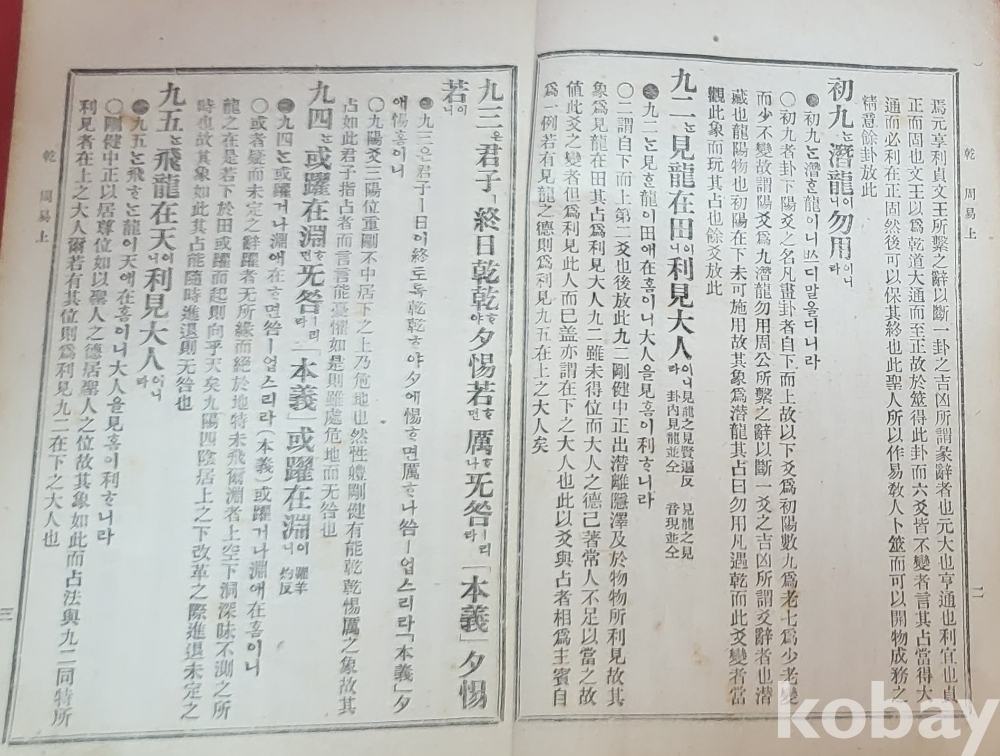 乾 周易上 二
焉元亨利貞文王所繫之辭以斷一卦之吉凶所謂彖辭者也元大也亨通也利宜也貞
正而固也文王以爲乾道大通而至正故於筮得此卦而六爻皆不變者言其占當得大
通而必利在正固然後可以保其終也此聖人所以作易敎人卜筮而可以開物成務之
精意餘卦放此
初九ᄂᆞᆫ潛龍이니勿用이니라
初九ᄂᆞᆫ潛ᄒᆞᆫ龍이니ᄡᅳ디말올디니라
○初九者卦下陽爻之名凡畫卦者自下而上故以下爻爲初陽數九爲老七爲少老變
而少不變故謂陽爻爲九潛龍勿用周公所繫之辭以斷一爻之吉凶所謂爻辭者也潛
藏也龍陽物也初陽在下未可施用故其象爲潛龍其占曰勿用凡遇乾而此爻變者當
觀此象而玩其占也餘爻放此
九二ᄂᆞᆫ見龍在田이니利見大人이니라 見龍之見賢遍反 卦內見龍並仝 見龍之見 音現並仝
九二ᄂᆞᆫ見ᄒᆞᆫ龍이田애在홈이니大人을見홈이利ᄒᆞ니라
○二謂自下而上第二爻也後放此九二剛健中正出潛離隱澤及於物物所利見故其
象爲見龍在田其占爲利見大人九二雖未得位而大人之德已著常人不足以當之故
値此爻之變者但爲利見此人而已盖亦謂在下之大人也此以爻與占者相爲主賓自
爲一例若有見龍之德則爲利見九五在上之大人矣
九三은君子ㅣ終日乾乾ᄒᆞ야夕惕若ᄒᆞ면厲ᄒᆞ나无咎ㅣ리라「本義」夕惕
若이니
九三은君子ㅣ日이終토록乾乾ᄒᆞ야夕에惕ᄒᆞ면厲ᄒᆞ나咎ㅣ업스리라「本義」夕
애惕홈이니
○九陽爻三陽位重剛不中居下之上乃危地也然性軆剛健有能乾乾惕厲之象故其
占如此君子指占者而言言能憂懼如是則雖處危地而无咎也
九四ᄂᆞᆫ或躍在淵ᄒᆞ면无咎ㅣ리라「本義」或躍在淵이니 躍羊灼反
九四ᄂᆞᆫ或躍거나淵애在ᄒᆞ면咎ㅣ업스리라(本義)或躍거나淵애在홈이니
○或者疑而未定之辭躍者无所緣而絕於地特未飛爾淵者上空下洞深昧不測之所
龍之在是若下於田或躍而起則向乎天矣九陽四陰居上之下改革之際進退未定之
時也故其象如此其占能隨時進退則无咎也
九五ᄂᆞᆫ飛龍在天이니利見大人이니라
九五ᄂᆞᆫ飛ᄒᆞᆫ龍이天애在홈이니大人을見홈이利ᄒᆞ니라
○剛健中正以居尊位如以聖人之德居聖人之位故其象如此而占法與九二同特所
利見者在上之大人爾若有其位則爲利見九二在下之大人也
乾 周易上 三
kobay